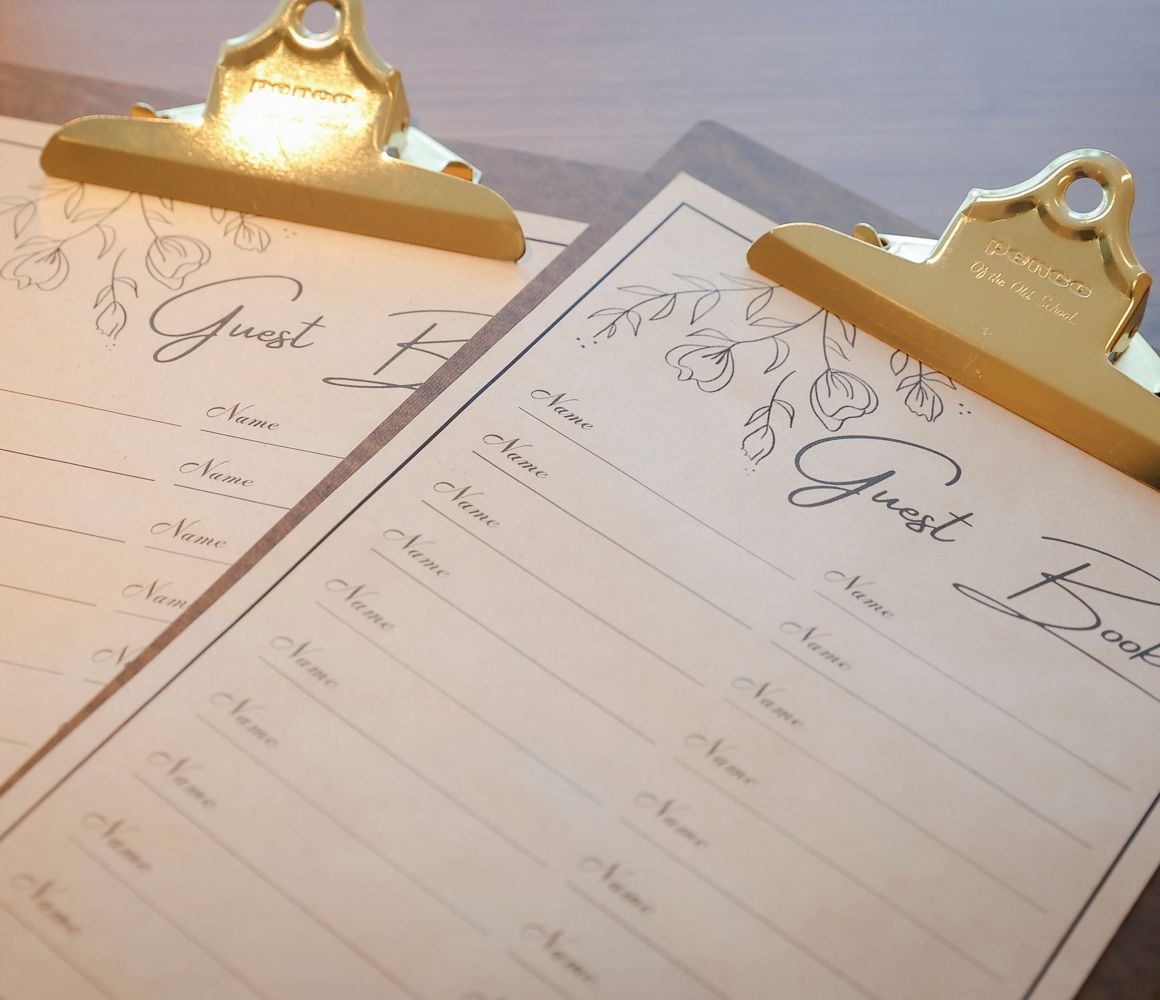 penco
Guest B
Name
Name
Name
Nam
N
penco
Of the Old School
Guest Book
Name Name
Name Name
Name Name
Name Name
Name Name
Name Name
Name Name
Name
Name
Name